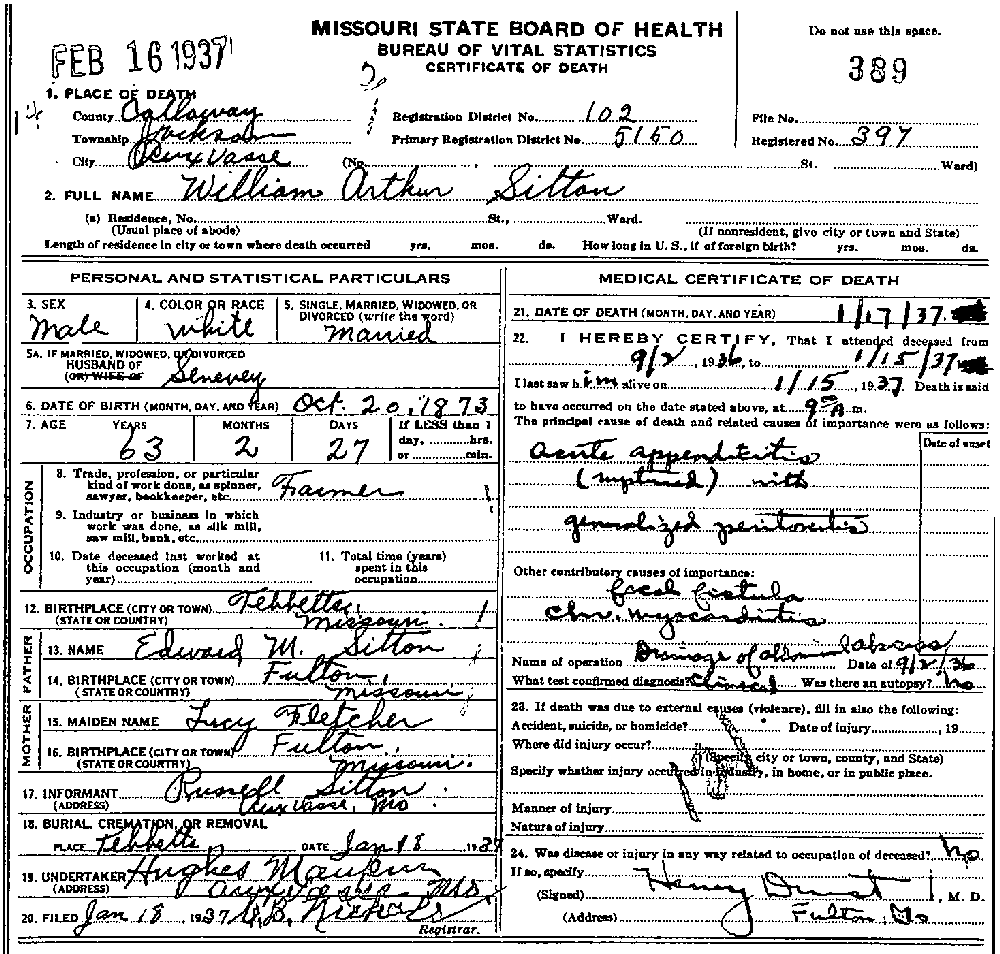 MISSOURI STATE BOARD OF HEALTH
BUREAU OF VITAL STATISTICS
CERTIFICATE OF DEATH
Do not use this space.
FEB 16 1937
389
1. PLACE OF DEATH
County Callaway Registration District No. 102 File No.
Township Jackson Primary Registration District No. 5150 Registered No. 397
City Auxvasse (No. St. Ward)
2. FULL NAME William Arthur Sitton
(a) Residence, No. St., Ward.
(Usual place of abode) (If nonresident, give city or town and State)
Length of residence in city or town where death occurred yrs. mos. ds. How long in U. S., if of foreign birth? yrs. mos. ds.
PERSONAL AND STATISTICAL PARTICULARS
3. SEX 4. COLOR OR RACE 5. SINGLE, MARRIED, WIDOWED, OR DIVORCED (write the word)
Male White Married
5A. IF MARRIED, WIDOWED, OR DIVORCED
HUSBAND OF
(OR) WIFE OF Senevey
6. DATE OF BIRTH (MONTH, DAY, AND YEAR) Oct. 20, 1873
7. AGE YEARS MONTHS DAYS If LESS than 1 day, hrs. or min.
63 2 27
OCCUPATION
8. Trade, profession, or particular
kind of work done, as spinner,
sawyer, bookkeeper, etc. Farmer
9. Industry or business in which
work was done, as silk mill,
saw mill, bank, etc.
10. Date deceased last worked at
this occupation (month and
year)
11. Total time (years)
spent in this
occupation
12. BIRTHPLACE (CITY OR TOWN) Tebbetts,
(STATE OR COUNTRY) Missouri.
FATHER
13. NAME Edward M. Sitton
14. BIRTHPLACE (CITY OR TOWN) Fulton,
(STATE OR COUNTRY) Missouri
MOTHER
15. MAIDEN NAME Lucy Fletcher
16. BIRTHPLACE (CITY OR TOWN) Fulton,
(STATE OR COUNTRY) Missouri.
17. INFORMANT Russell Sitton
(ADDRESS) Auxvasse, Mo.
18. BURIAL, CREMATION, OR REMOVAL
PLACE Tebbetts DATE Jan 18 1937
19. UNDERTAKER Hughes Maupin
(ADDRESS) Auxvasse Mo.
20. FILED Jan 18, 1937 Nichols
Registrar.
MEDICAL CERTIFICATE OF DEATH
21. DATE OF DEATH (MONTH, DAY, AND YEAR) 1/17/37
22. I HEREBY CERTIFY, That I attended deceased from
9/2, 1936, to 1/15/37
I last saw him alive on 1/15, 1937 Death is said
to have occurred on the date stated above, at 9 A. m.
The principal cause of death and related causes of importance were as follows:
Date of onset
Acute appendicitis
(ruptured) with
generalized peritonitis
Other contributory causes of importance:
fecal fistula
chr. myocarditis
Name of operation Drainage of abdominal abscess Date of 9/2/36
What test confirmed diagnosis? Clinical Was there an autopsy? No
23. If death was due to external causes (violence), fill in also the following:
Accident, suicide, or homicide? Date of injury , 19
Where did injury occur?
(Specify city or town, county, and State)
Specify whether injury occurred in industry, in home, or in public place.
Manner of injury
Nature of injury
24. Was disease or injury in any way related to occupation of deceased? No
If so, specify
(Signed) Henry Durst, M. D.
(Address) Fulton, Mo